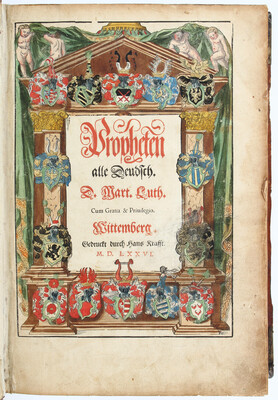 Propheten
alle Deudsch.
D. Mart. Luth.
Cum Gratia & Priuilegio.
Wittemberg.
Gedruckt durch Hans Krafft.
M. D. LXXVI.